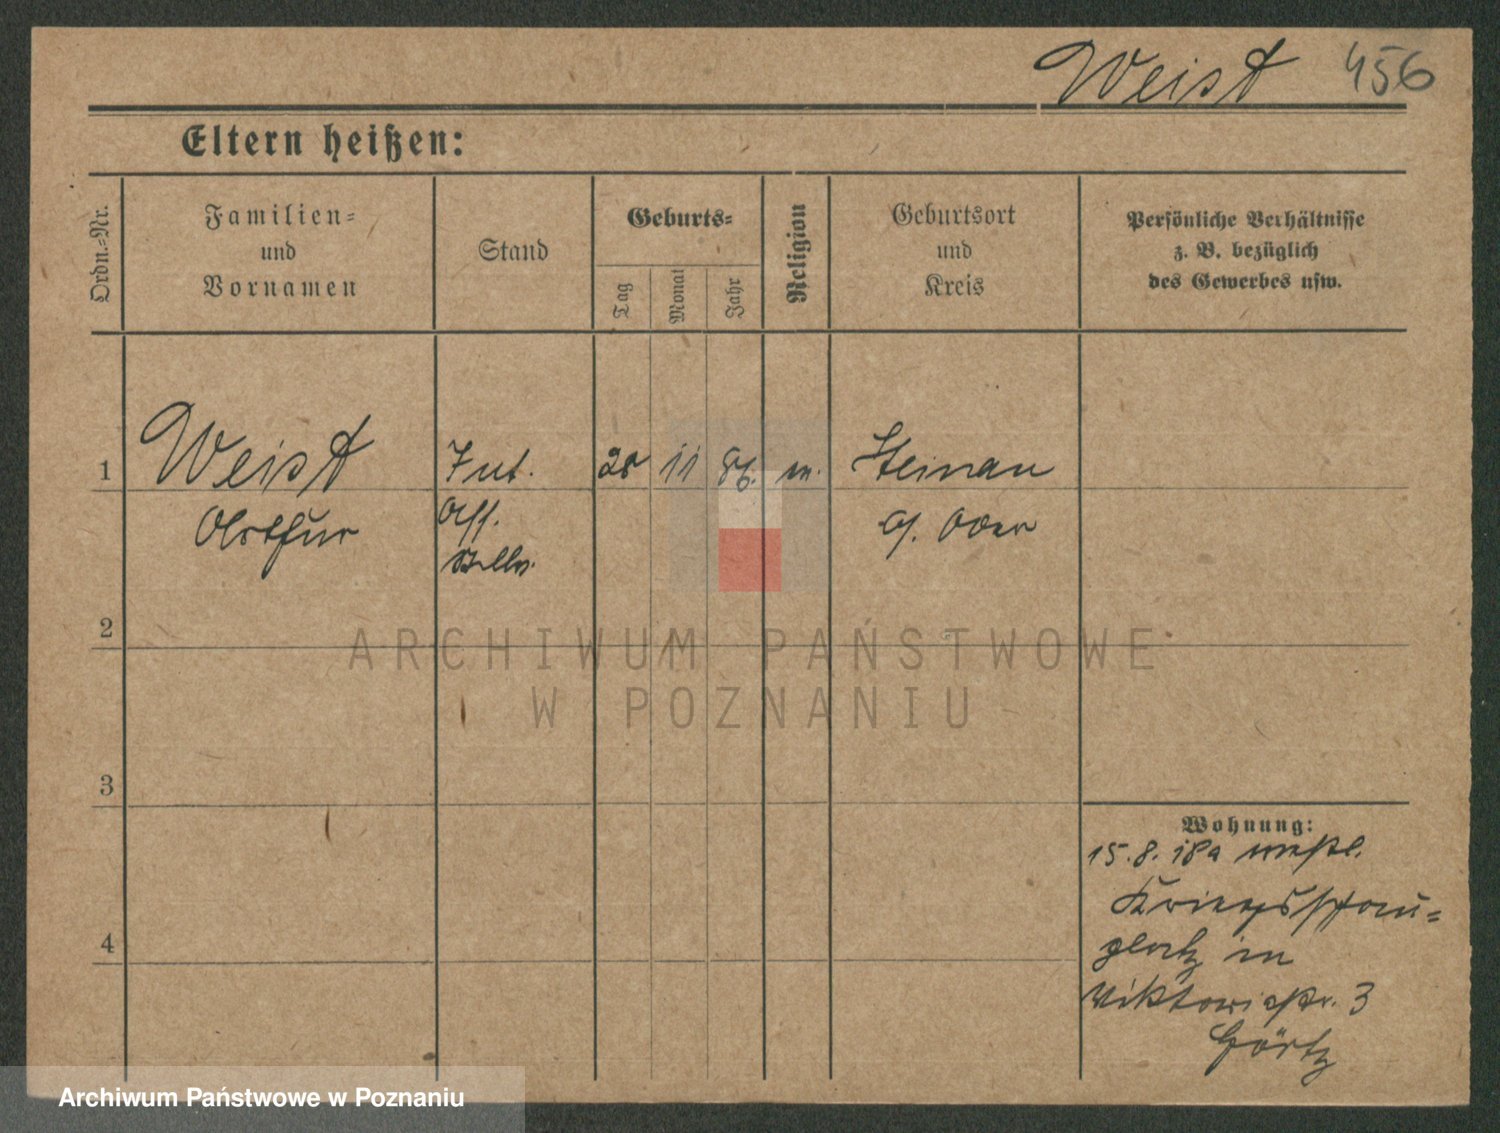 Weist 456
Eltern heißen:
Ordn.-Nr.
Familien-
und
Vornamen
Stand
Geburts-
Tag
Monat
Jahr
Religion
Geburtsort
und
Kreis
Persönliche Verhältnisse
z. B. bezüglich
des Gewerbes usw.
1 Weist Int. 28 11 86. Steinau
Off.
a/. Oder
2
3
4
Wohnung:
15.8.18
in
Viktoriastr. 3
Görtz
ARCHIWUM PAŃSTWOWE
W POZNANIU
Archiwum Państwowe w Poznaniu